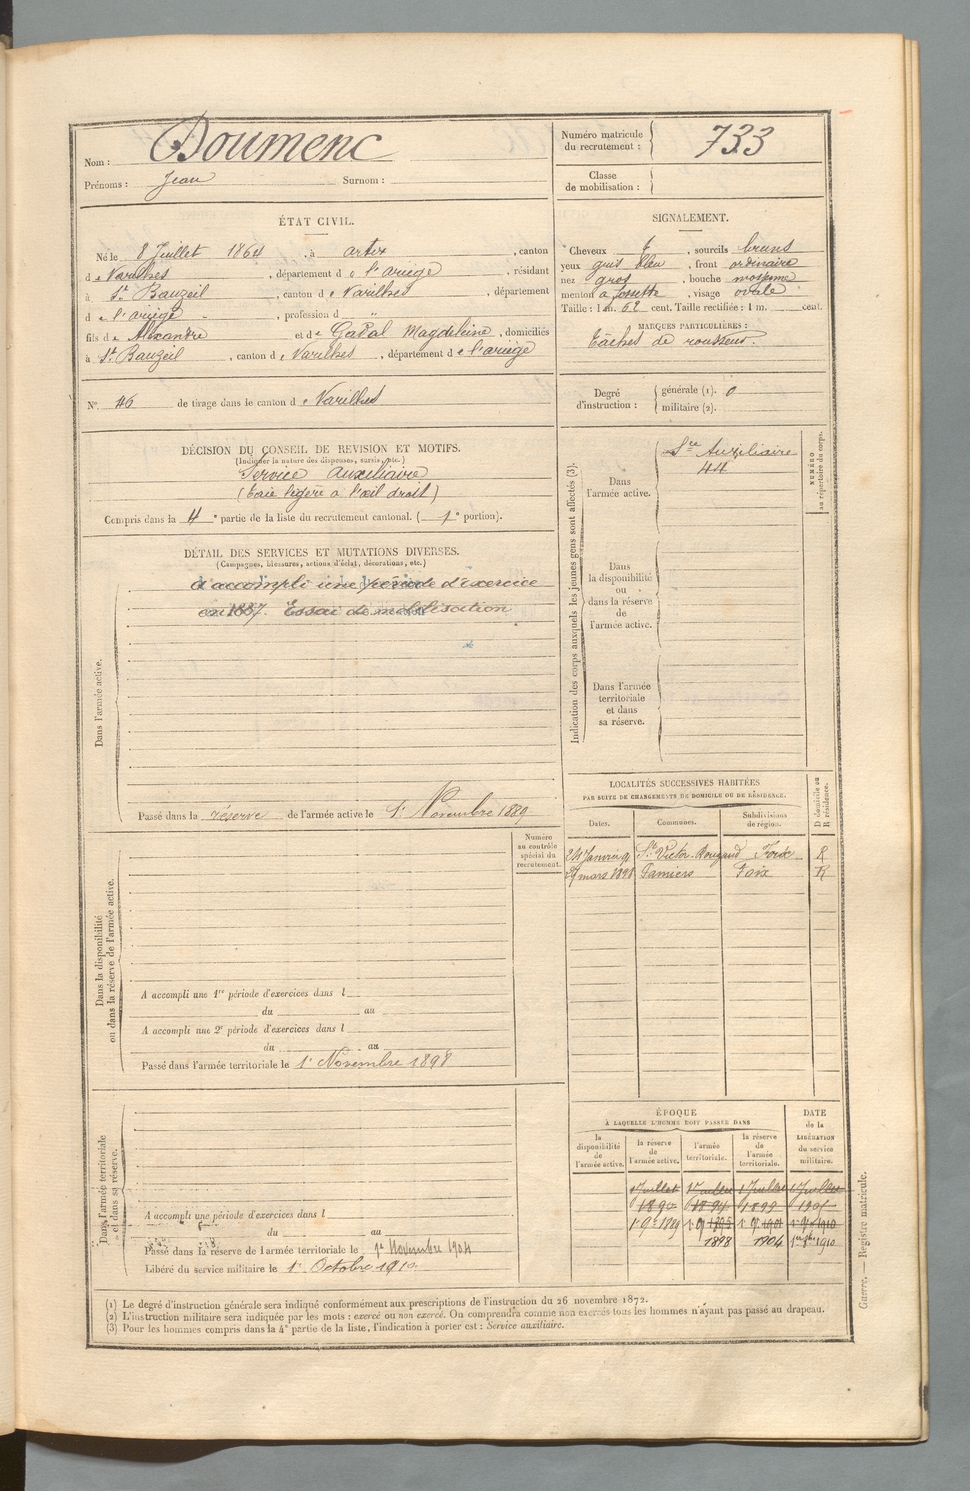 Nom : Doumenc
Prénoms : Jean Surnom :
Numéro matricule du recrutement : 733
Classe de mobilisation :
ÉTAT CIVIL.
Né le 8 Juillet 1864, à artix, canton
de Varilhes, département d e l'ariège, résidant
à St. Bauzeil, canton de Varilhes, département
d e l'ariège, profession d "
fils de Alexandre et de Gabal Magdeleine, domiciliés
à St. Bauzeil, canton de Varilhes, département de l'ariège
SIGNALEMENT.
Cheveux et, sourcils bruns
yeux gris bleu, front ordinaire
nez gros, bouche moyenne
menton à fossette, visage ovale
Taille : 1 m. 62 cent. Taille rectifiée : 1 m. cent.
MARQUES PARTICULIÈRES :
Tâches de rousseur.
N° 46 de tirage dans le canton de Varilhes
Degré d'instruction : générale (1). 0
militaire (2).
DÉCISION DU CONSEIL DE REVISION ET MOTIFS.
(Indiquer la nature des dispenses, sursis, etc.)
Service auxiliaire
(taie légère à l'œil droit)
Compris dans la 4e partie de la liste du recrutement cantonal. (1e portion).
DÉTAIL DES SERVICES ET MUTATIONS DIVERSES.
(Campagnes, blessures, actions d'éclat, décorations, etc.)
Dans l'armée active.
A accompli une période d'exercice
en 1887. Essai de mobilisation
Passé dans la réserve de l'armée active le 1er Novembre 1889
Indication des corps auxquels les jeunes gens sont affectés (3).
Dans l'armée active.
Sce Auxiliaire
44
Dans la disponibilité ou dans la réserve de l'armée active.
Dans l'armée territoriale et dans sa réserve.
NUMÉRO au répertoire du corps.
LOCALITÉS SUCCESSIVES HABITÉES
PAR SUITE DE CHANGEMENTS DE DOMICILE OU DE RÉSIDENCE.
Dates. Communes. Subdivisions de région. D domicile ou R résidence.
St Victor-Rouzaud Foix R
27 mars 1898 Pamiers Foix R
Numéro au contrôle spécial du recrutement.
Dans la disponibilité ou dans la réserve de l'armée active.
A accompli une 1re période d'exercices dans l
du au
A accompli une 2e période d'exercices dans l
du au
Passé dans l'armée territoriale le 1er Novembre 1898
Dans l'armée territoriale et dans sa réserve.
A accompli une période d'exercices dans l
du au
Passé dans la réserve de l'armée territoriale le 1er Novembre 1904
Libéré du service militaire le 1er Octobre 1910.
ÉPOQUE
À LAQUELLE L'HOMME DOIT PASSER DANS
la disponibilité de l'armée active.
la réserve de l'armée active.
l'armée territoriale.
la réserve de l'armée territoriale.
DATE de la LIBÉRATION du service militaire.
1 Juillet 1 Juillet 1 Juillet 1 Juillet
1890 1894 1899
1898 1904 1910
(1) Le degré d'instruction générale sera indiqué conformément aux prescriptions de l'instruction du 26 novembre 1872.
(2) L'instruction militaire sera indiquée par les mots : exercé ou non exercé. On comprendra comme non exercés tous les hommes n'ayant pas passé au drapeau.
(3) Pour les hommes compris dans la 4e partie de la liste, l'indication à porter est : Service auxiliaire.
Guerre. — Registre matricule.